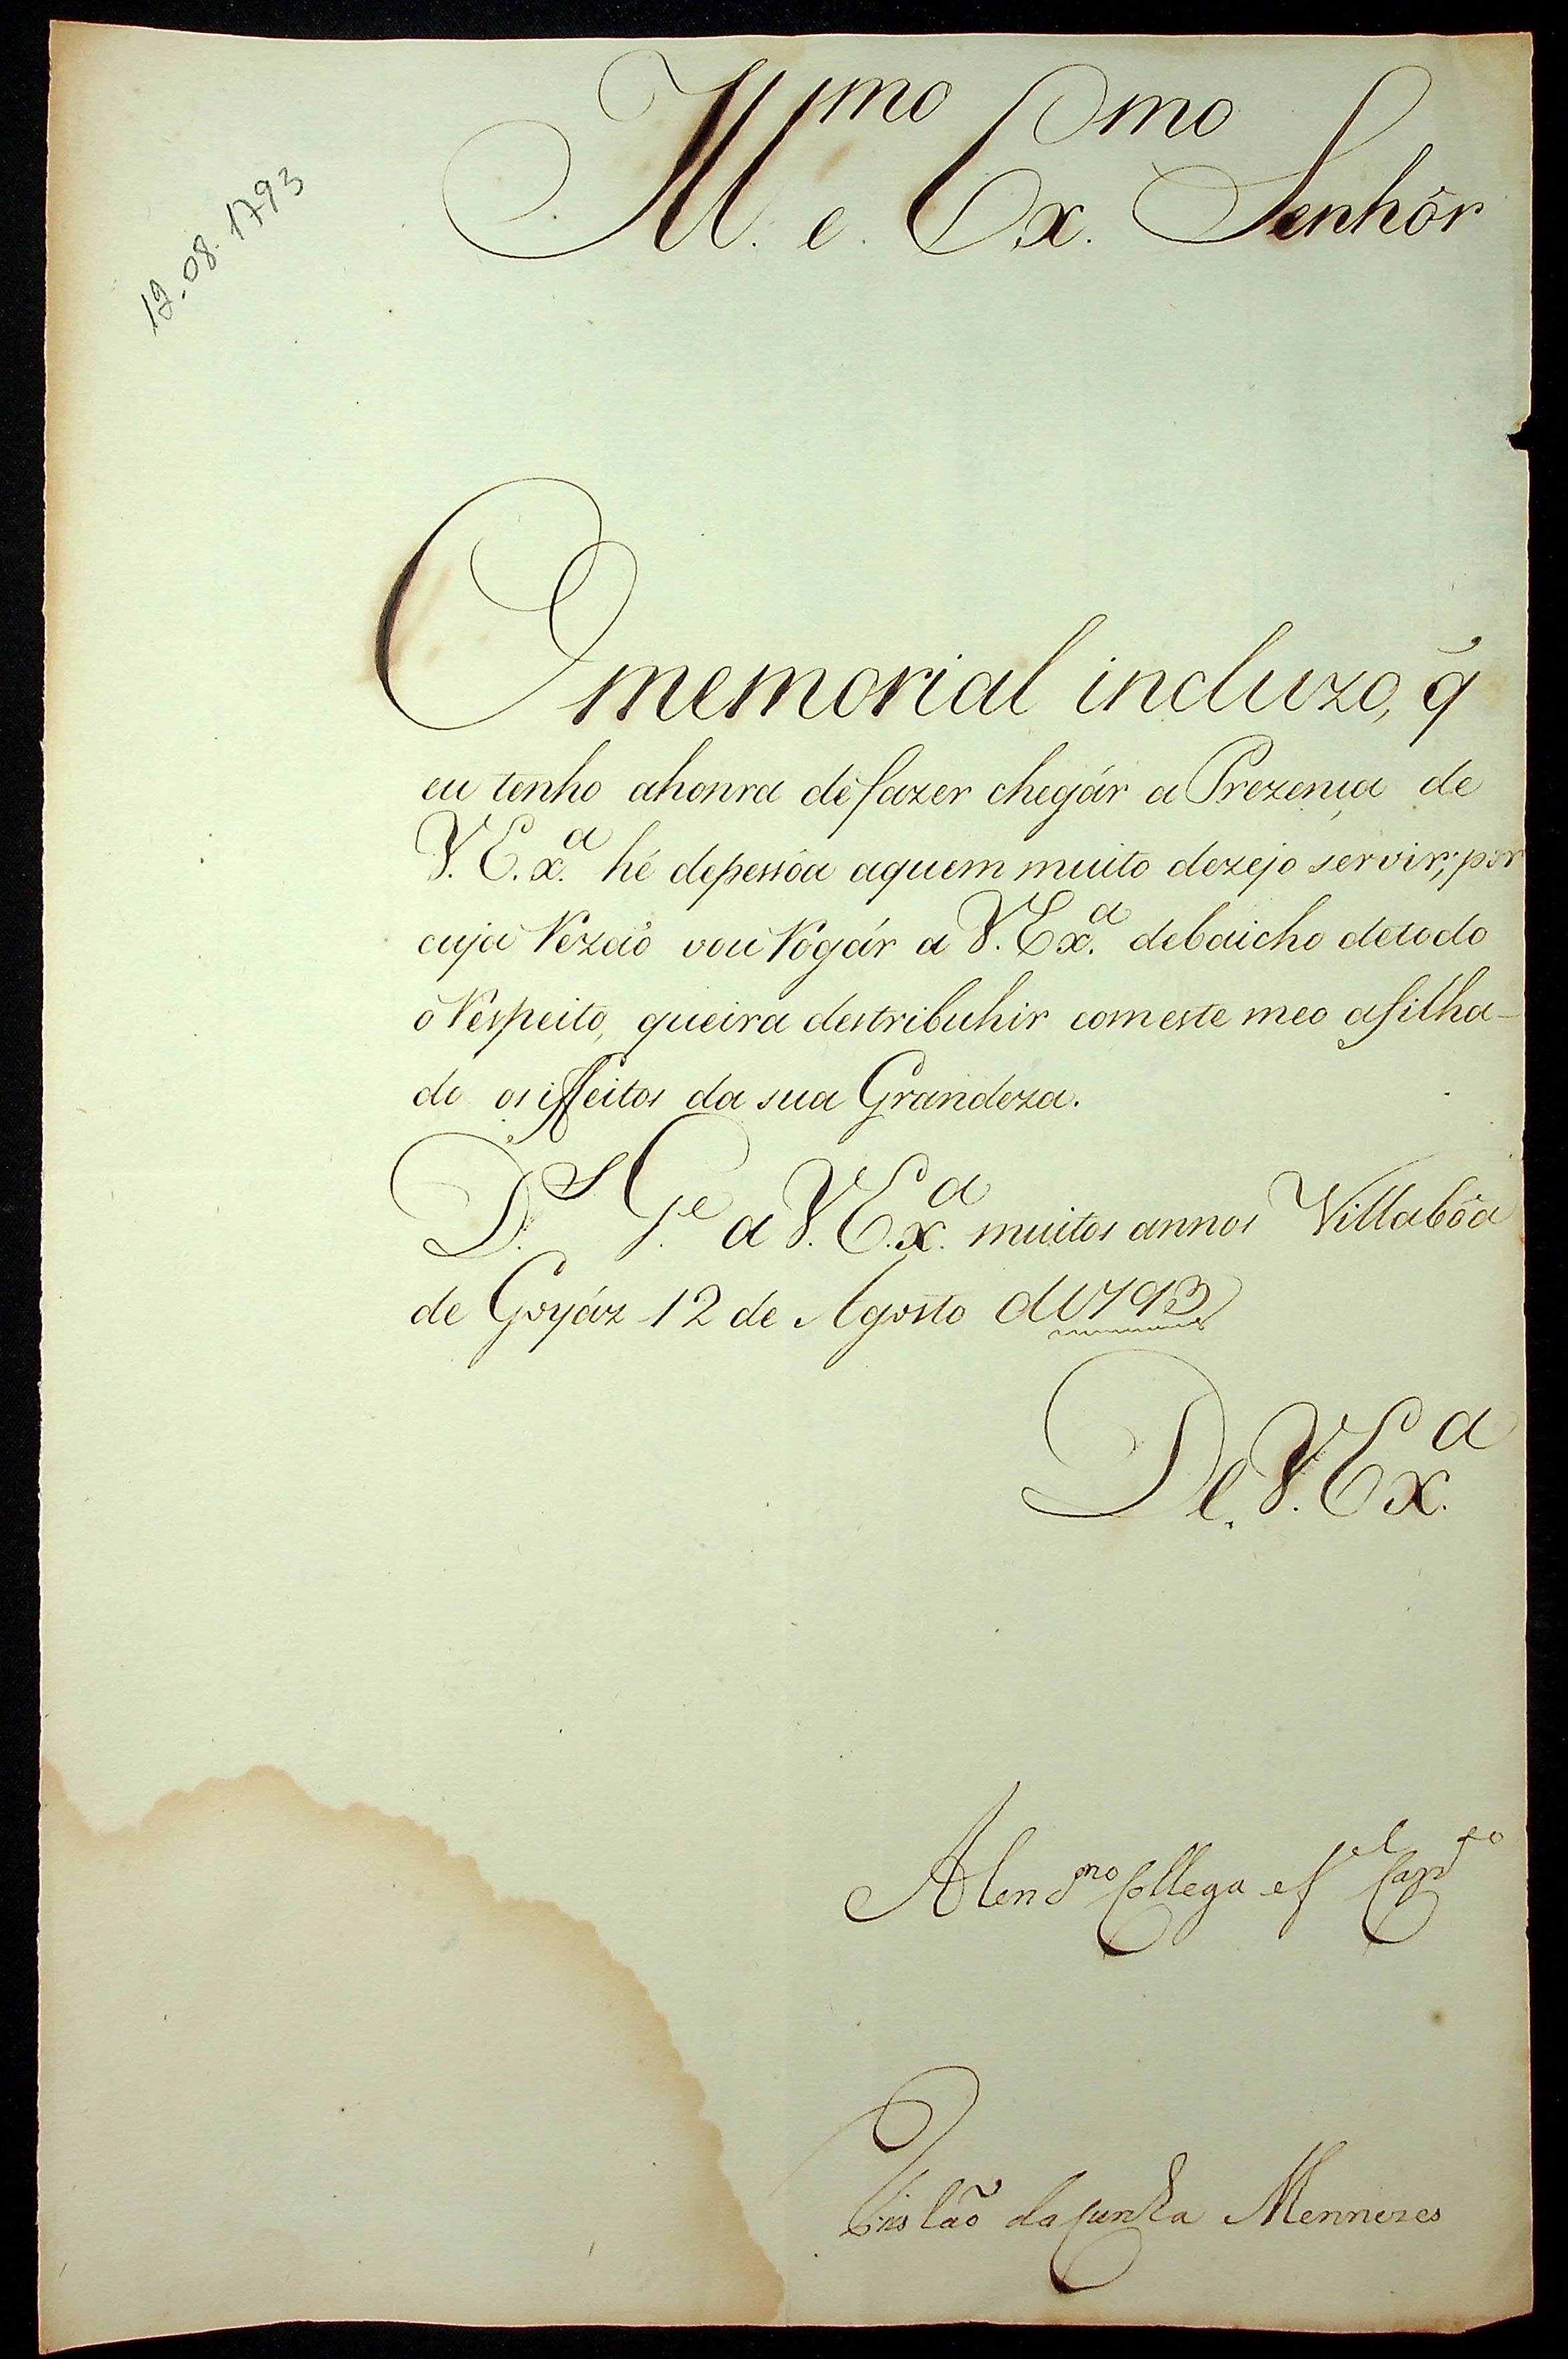 12-08-1793
Ill.mo e Ex.mo Senhôr
O memorial incluzo, q̃
eu tenho ahonra de fazer chegár a Prezença de
V. Ex.a hé depessôa aquem muito dezejo servir; por
cuja Rezaõ vou Rogár a V. Ex.a debaicho detodo
o Respeito, queira destribuhir comeste meo afilha-
do os effeitos da sua Grandeza.
D.s G.e a V. Ex.a muitos annos Villabôa
de Goyáz 12 de Agosto de 1793
De V. Ex.a
Collega e
Tristaõ da Cunha Mennezes